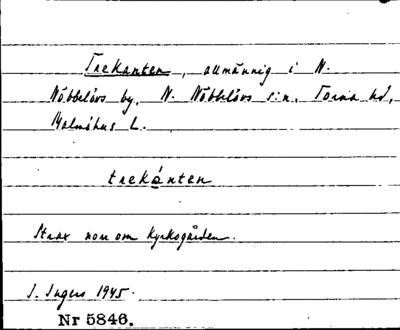 Trekanten, allmännig i N.
Nöbbelövs by, N. Nöbbelövs s:n, Torna hd,
Malmöhus L.
trekánten
Strax norr om kyrkogården.
I. Ingers 1945.
Nr 5846.